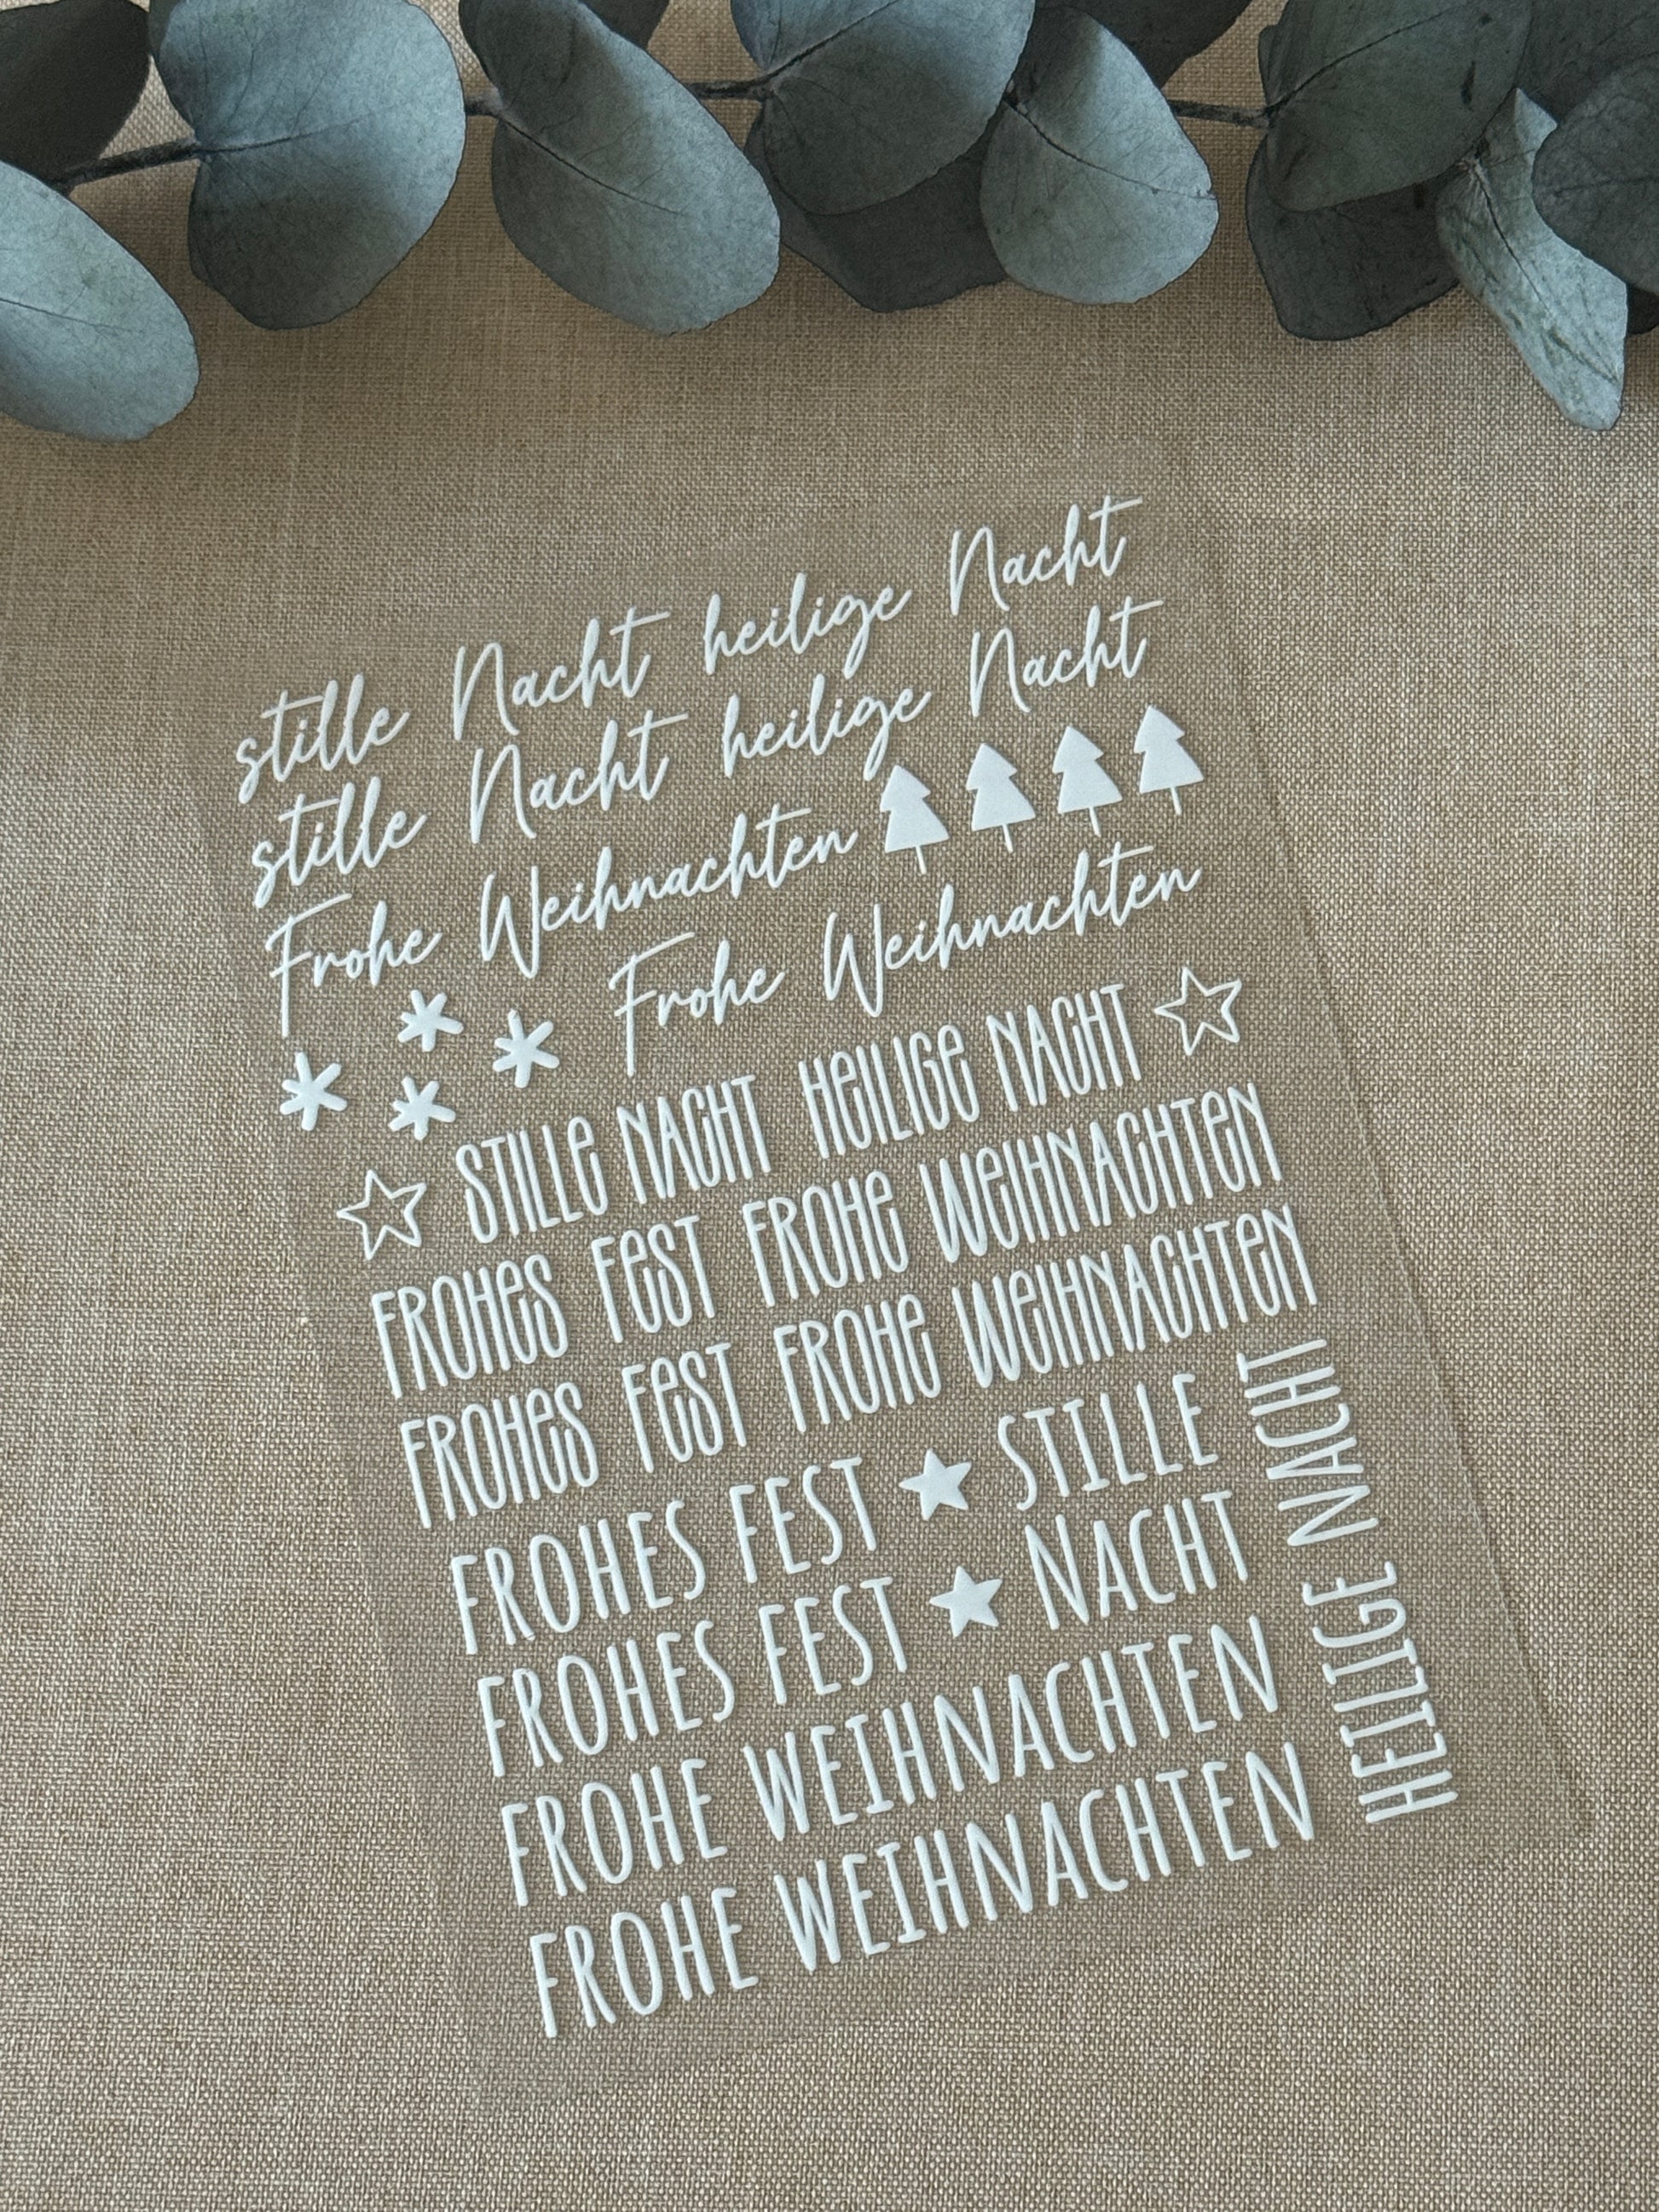 stille Nacht heilige Nacht
stille Nacht heilige Nacht
Frohe Weihnachten
Frohe Weihnachten
STILLE NACHT HEILIGE NACHT
FROHES FEST FROHE WEIHNACHTEN
FROHES FEST FROHE WEIHNACHTEN
FROHES FEST STILLE
FROHES FEST NACHT
FROHE WEIHNACHTEN
FROHE WEIHNACHTEN
HEILIGE NACHT